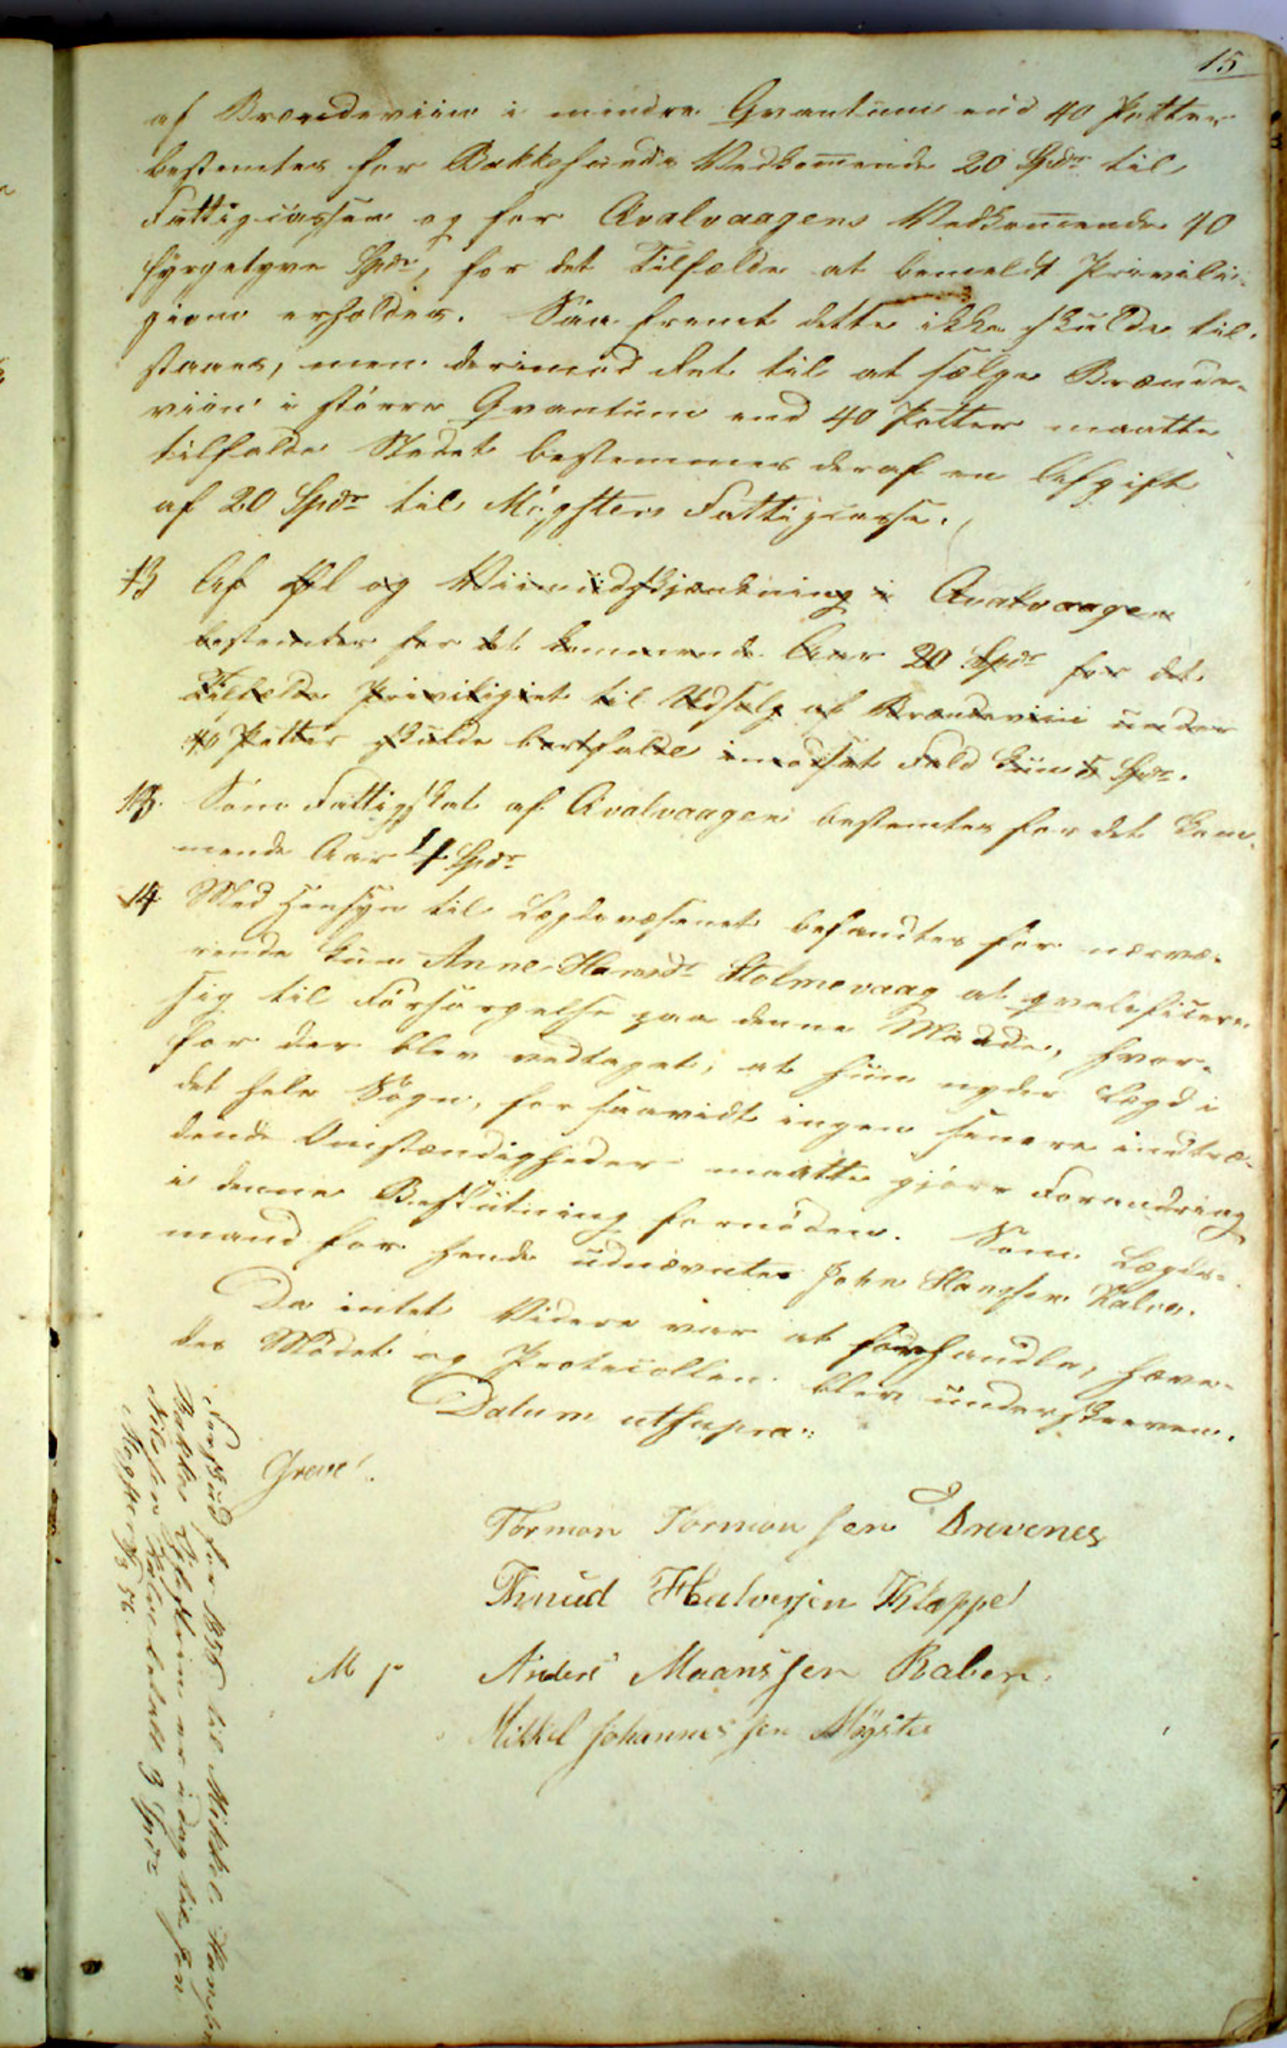 15
af Brændeviin i mindre Qvantum end 40 Potter
bestemtes for Bakkesunds Vedkommende 20 Spdr til
Fattigcassen og for Qvalvaagens Vedkommende 40
fyrgetyve Spdr, for det Tilfælde at bemeldt Privile-
gium erholdes. Saa fremt dette ikke skulde til-
staaes, men derimod Ret til at sælge Brænde-
viin i större Qvantum end 40 Potter maatte
tilfalde Stedet bestemmes deraf en Afgift
af 20 Spdr til Mögsters Fattigcasse.
13 Af Øl og Viinudskjænkning i Qvalvaagen
bestemtes for det kommende Aar 20 Spdr for det
Tilfælde Priviligiet til Udsalg af Brændeviin under
40 Potter skulde bortfalde imodsat Fald kun 5 Spdr.
13. Som Fattigskat af Qvalvaagen bestemtes for det kom-
mende Aar Spdr
14 Med Hensyn til Lægdevæsenet befandtes for nærvæ-
rende kun Anne Hansdr Stolmevaag at qvalificere
sig til Forsörgelse paa denne Maade, hvor-
for der blev vedtaget, at hun nyder Lægd i
det hele Sogn, for saavidt ingen senere indtræ-
dende Omstændigheder maatte gjöre Forandring
i denne Beslutning fornöden. Som Lægds-
mand for hende udnævntes John Hanssen Kalve.
Da intet Videre var at forhandle, hæve-
des Mödet og Protocollen blev underskreven.
Datum utsupra.
Greve
Tormon Tormonsen Drevenes
Knud Halversen Kleppe
M p Anders Maanssen Raben
Mikkel Johannessen Møgster
for 1856 til Mikkel Hansen
Bakke er i dag
betalt 3 Spdr
Mögster 56.